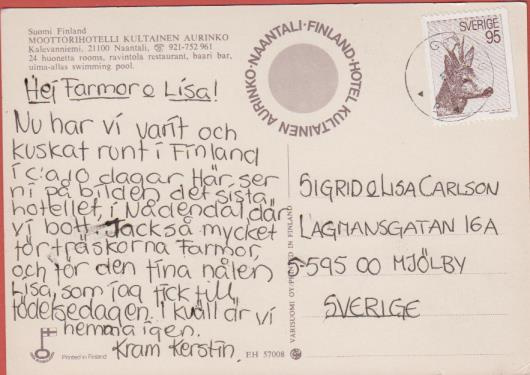 Suomi Finland
MOOTTORIHOTELLI KULTAINEN AURINKO
Kalevanniemi, 21100 Naantali, ☎ 921-752 961
24 huonetta rooms, ravintola restaurant, baari bar,
uima-allas swimming pool.
AURINKO · NAANTALI · FINLAND · HOTEL KULTAINEN
SVERIGE
95
Hej Farmor o Lisa!
Nu har vi varit och
kuskat runt i Finland
i c:a 10 dagar. Här ser
ni på bilden det sista
hotellet, i Nådendal, där
vi bott. Tack så mycket
för träskorna Farmor,
och för den fina nålen
Lisa, som jag fick till
födelsedagen. I kväll är vi
hemma igen.
Kram Kerstin.
SIGRID o LISA CARLSON
LAGMANSGATAN 16A
S-595 00 MJÖLBY
SVERIGE
VARISUOMI OY · PRINTED IN FINLAND
Printed in Finland
EH 57008